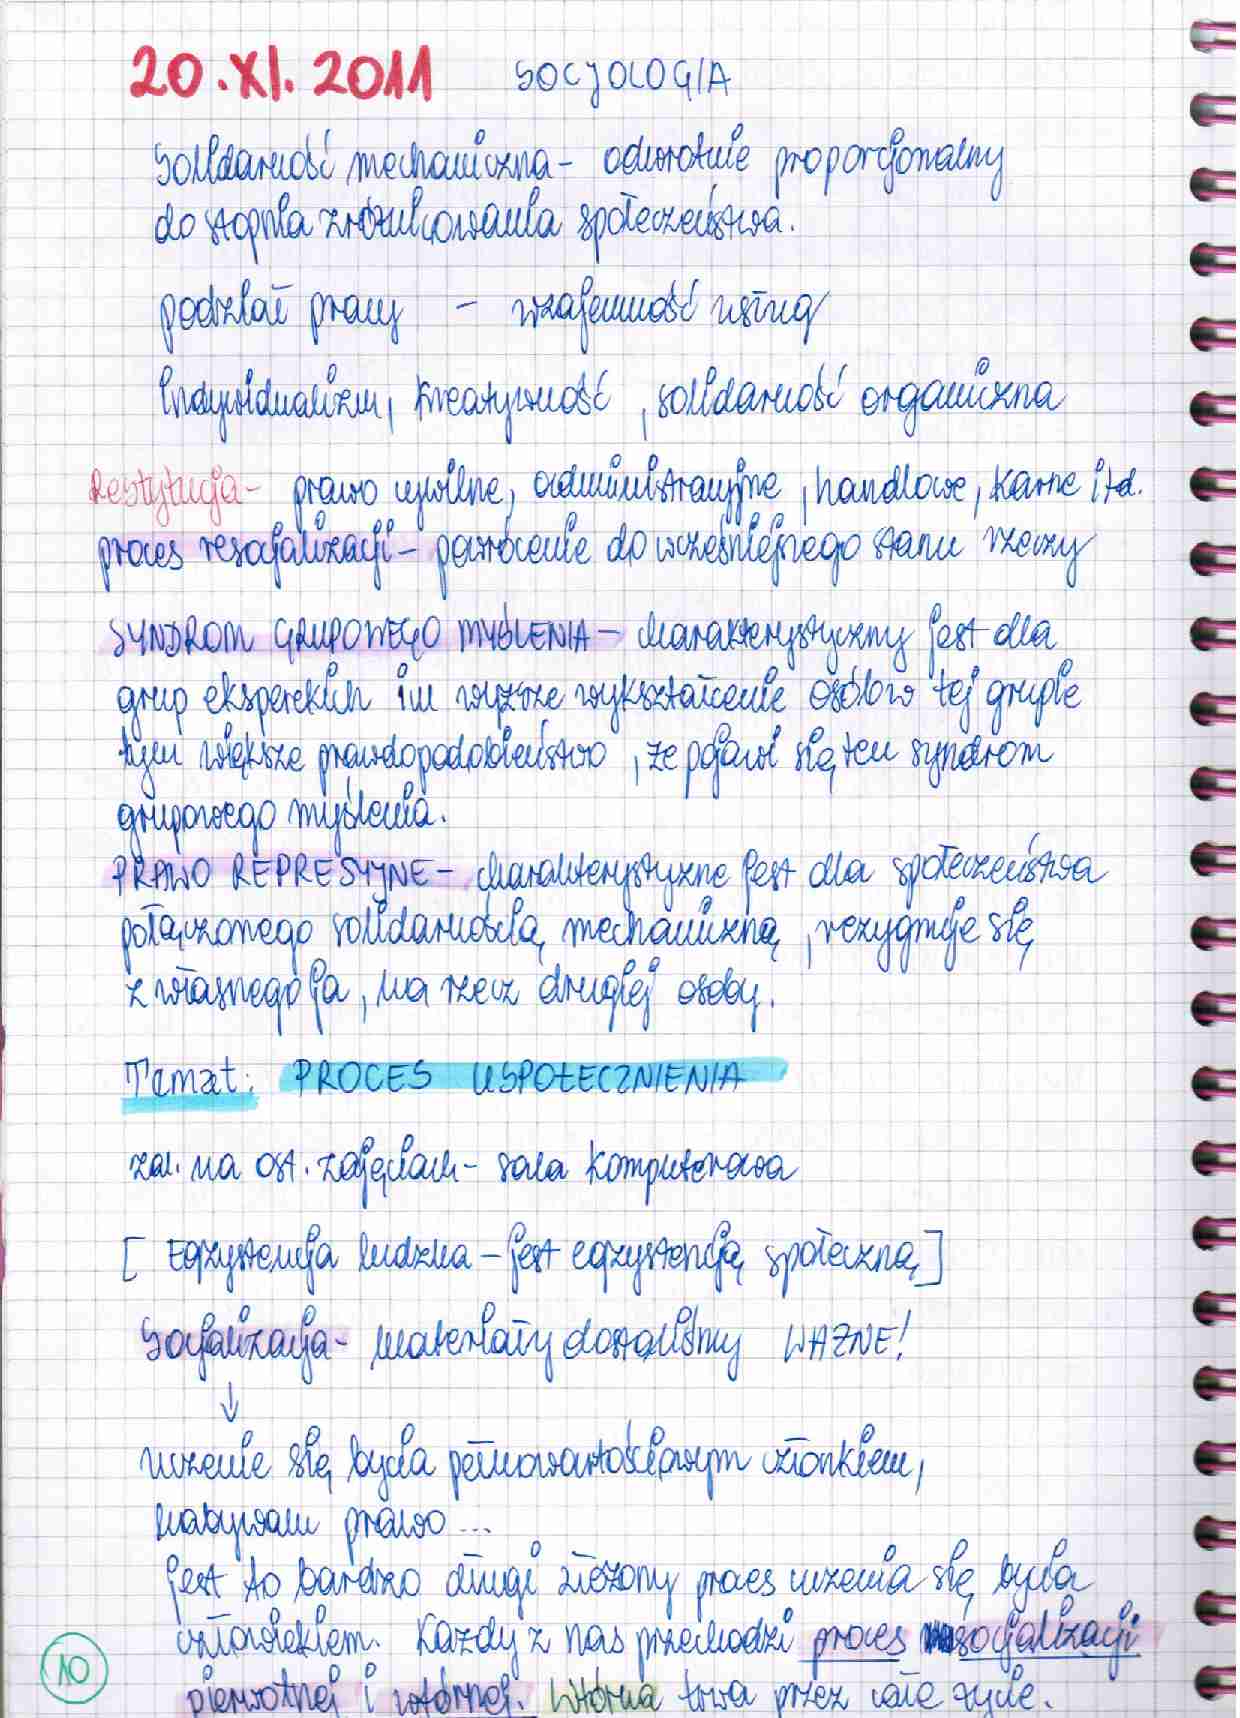 20.XI.2011 SOCJOLOGIA
Solidarność mechaniczna - odwrotnie proporcjonalny
do stopnia zróżnicowania społeczeństwa.
podział pracy - wzajemność usług
Indywidualizm, kreatywność, solidarność organiczna
Restytucja - prawo cywilne, administracyjne, handlowe, karne itd.
proces resocjalizacji - powrócenie do wcześniejszego stanu rzeczy
SYNDROM GRUPOWEGO MYŚLENIA - charakterystyczny jest dla
grup eksperckich im wyższe wykształcenie osób w tej grupie
tym większe prawdopodobieństwo, że pojawi się ten syndrom
grupowego myślenia.
PRAWO REPRESYJNE - charakterystyczne jest dla społeczeństwa
połączonego solidarnością mechaniczną, rezygnuje się
z własnego ja, na rzecz drugiej osoby.
Temat: PROCES USPOŁECZNIENIA
zal. na ost. zajęciach - sala komputerowa
[Egzystencja ludzka - jest egzystencją społeczną]
Socjalizacja - materiały dostaliśmy WAŻNE!
↓
uczenie się bycia pełnowartościowym członkiem,
nabywam prawo...
jest to bardzo długi złożony proces uczenia się bycia
człowiekiem. Każdy z nas przechodzi proces socjalizacji
pierwotnej i wtórnej. Wtórna trwa przez całe życie.
10